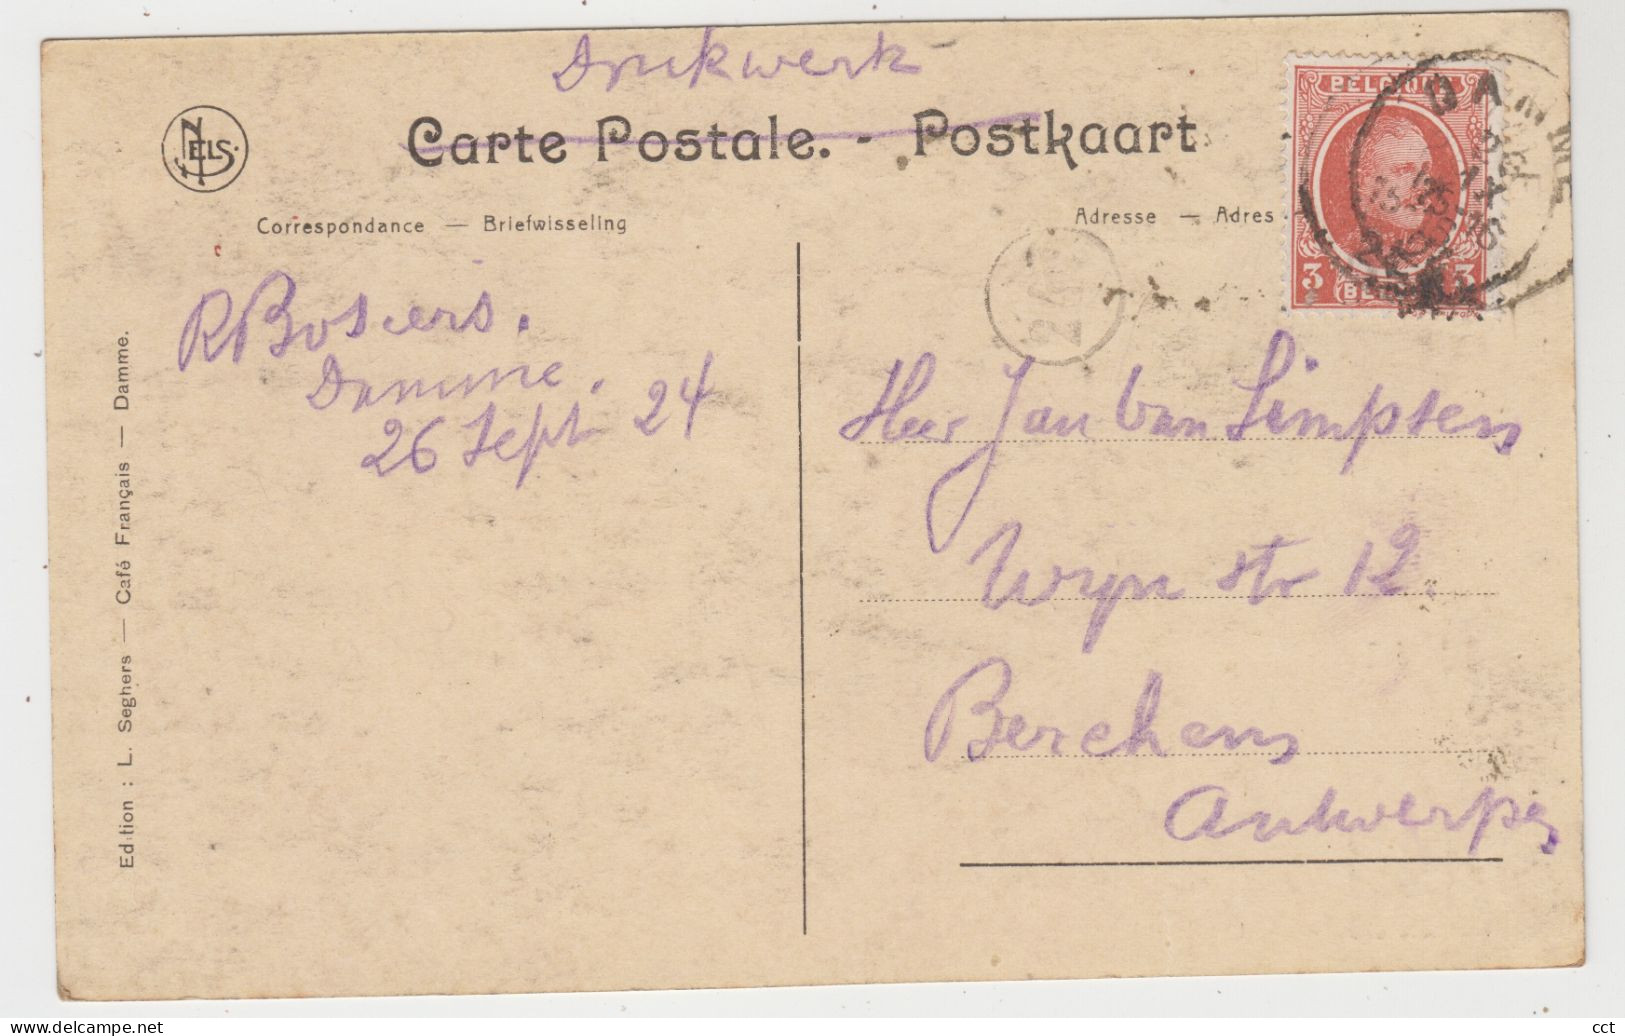 Drukwerk
NELS
Carte Postale. - Postkaart
Correspondance — Briefwisseling
Adresse — Adres
BELGIQUE
3 3
DAMME
R Bosiers.
Damme.
26 Sept 24
Heer Jan Van Simpsen
Wyn str 12.
Berchem
Antwerpen
Edition : L. Seghers — Café Français — Damme.
cct